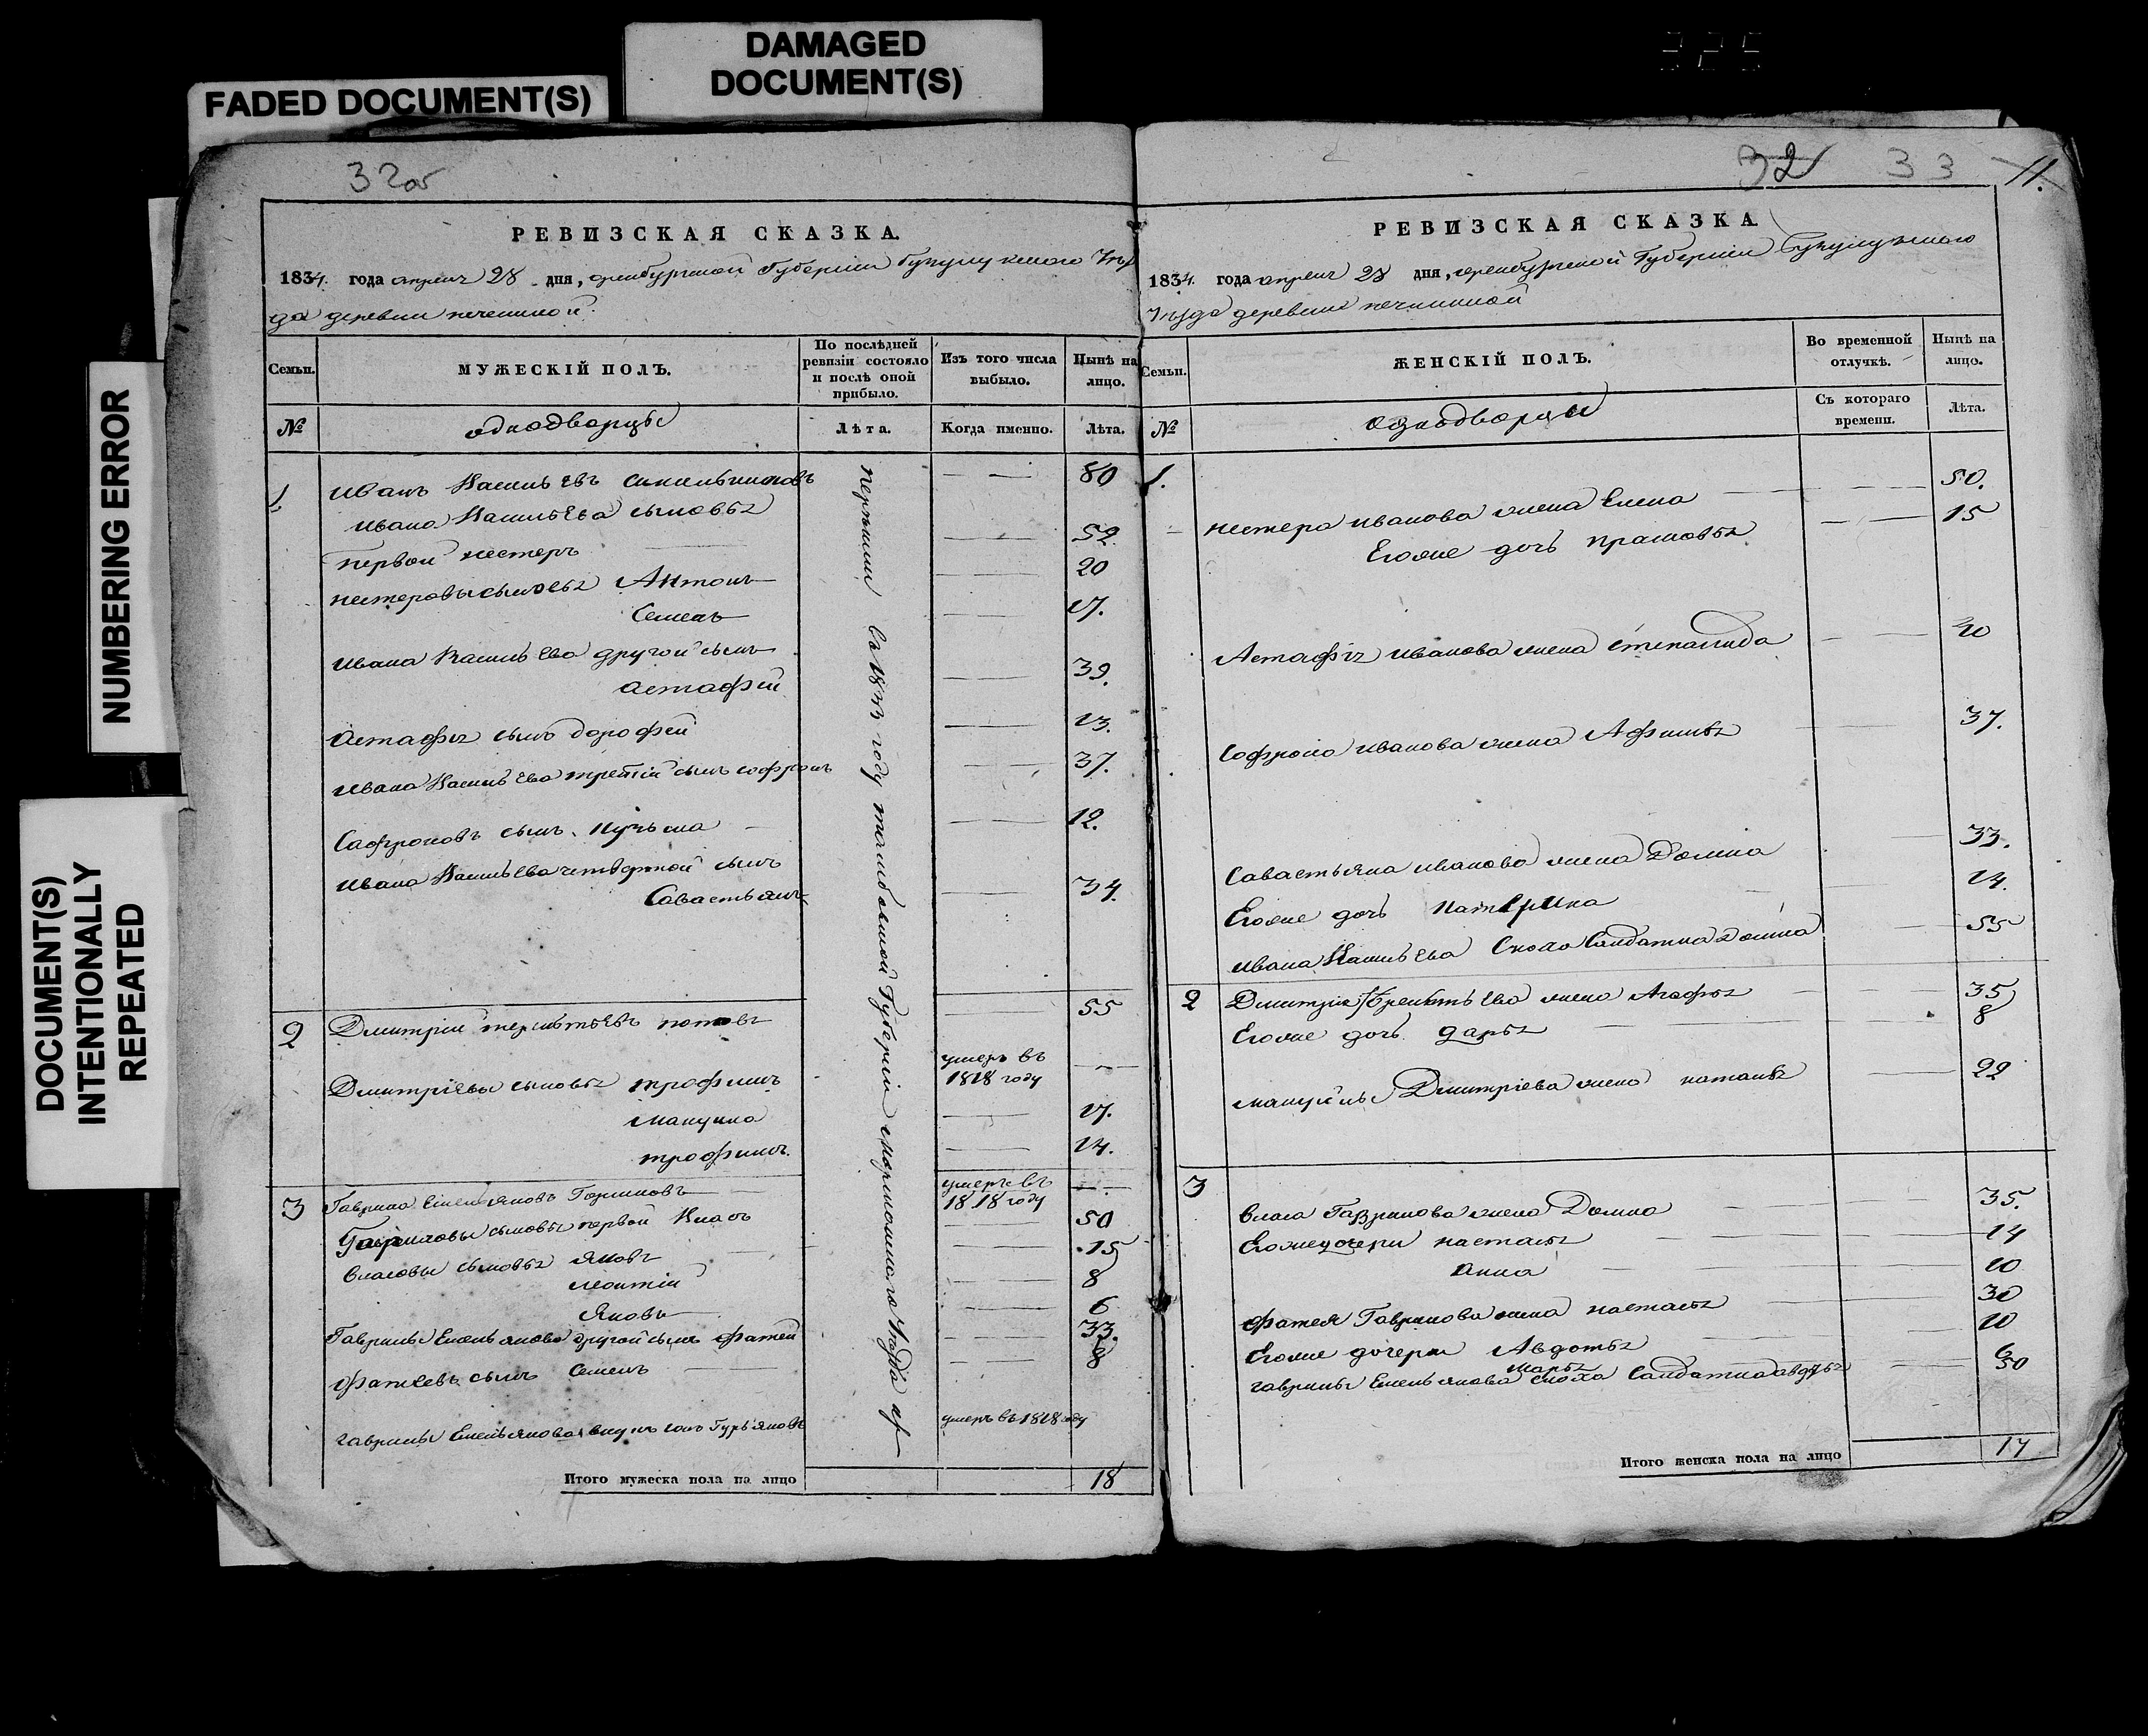 FADED DOCUMENT(S)
DAMAGED
DOCUMENT(S)
NUMBERING ERROR
DOCUMENT(S)
INTENTIONALLY
REPEATED
32об
РЕВИЗСКАЯ СКАЗКА.
1834. года апреля 28 дня, оренбургской Губернии
да деревни
Семьи. МУЖЕСКІЙ ПОЛЪ. По послѣдней ревизіи состояло и послѣ оной прибыло. Изъ того числа выбыло. Нынѣ на лицо.
№ однодворцы Лѣта. Когда именно. Лѣта.
1 Иванъ Васильевъ 80
Ивана Васильева сыновья
первой нестеръ 52
нестеровы сыновья Антонъ 20
Семенъ 17.
Ивана Васильева другой сынъ
астафей 39.
Астафья сынъ дорофей 13.
Ивана Васильева третій сынъ софронъ 37.
Сафроновъ сынъ Кузьма 12.
Ивана Васильева четвертой сынъ
Савастьянъ 34.
2 Дмитрій терентьевъ 55
Дмитріевы сыновья трофимъ умеръ въ 1818 году
мануила 17.
трофимъ 14.
3 Гаврила Емельяновъ умеръ въ 1818 году
Гавриловы сыновья первой Власъ 50
власовы сыновья Яковъ 15
леонтій 8
Яковъ 6
Гаврилы Емельянова другой сынъ фатей 33.
фатеевъ сынъ Семенъ 8
гаврилы Емельянова внукъ умеръ въ 1818 году
году тамбовской Губерніи
Итого мужеска пола на лицо 18
32 33 11.
РЕВИЗСКАЯ СКАЗКА
1834. года апреля 28 дня, оренбургской Губерніи
уезда деревни
Семьи. ЖЕНСКІЙ ПОЛЪ. Во временной отлучкѣ. Нынѣ на лицо.
№ однодворцы Съ котораго времени. Лѣта.
1. нестера иванова жена Елена 50.
Егоже дочь прасковья 15
Астафья иванова жена степанида 40
Софрона иванова жена Афимья 37.
Савастьяна иванова жена Домна 33.
Егоже дочь катерина 14.
ивана Васильева сноха Салдатка Домна 55
2 Дмитрія терентьева жена Агафья 35
Егоже дочь дарья 8
мануйлы Дмитріева жена наталья 22
3 власа Гаврилова жена Домна 35.
Егоже дочери настасья 14
Анна 10
фатея Гаврилова жена настасья 30
Егоже дочери Авдотья 10
марья 6
гаврилы Емельянова сноха Салдатка 50
Итого женска пола на лицо 17